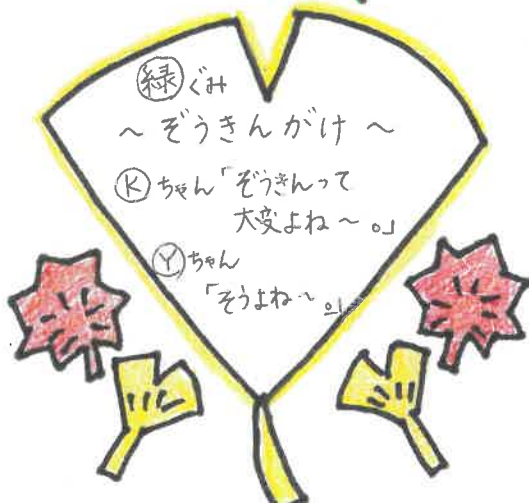 緑ぐみ
～ぞうきんがけ～
Kちゃん「ぞうきんって
大変よね～。」
Yちゃん
「そうよね～。」